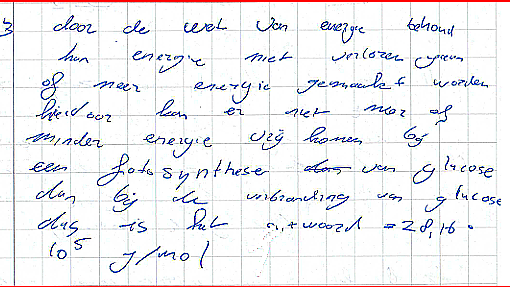 3 door de wet van energie behoud
kan energie niet verloren gaan
of meer energie gemaakt worden
hierdoor kan er niet meer of
minder energie vrij komen bij
een fotosynthese van glucose
dan bij de verbranding van glucose
dus is het antwoord = 28,16 ·
10⁵ J/mol